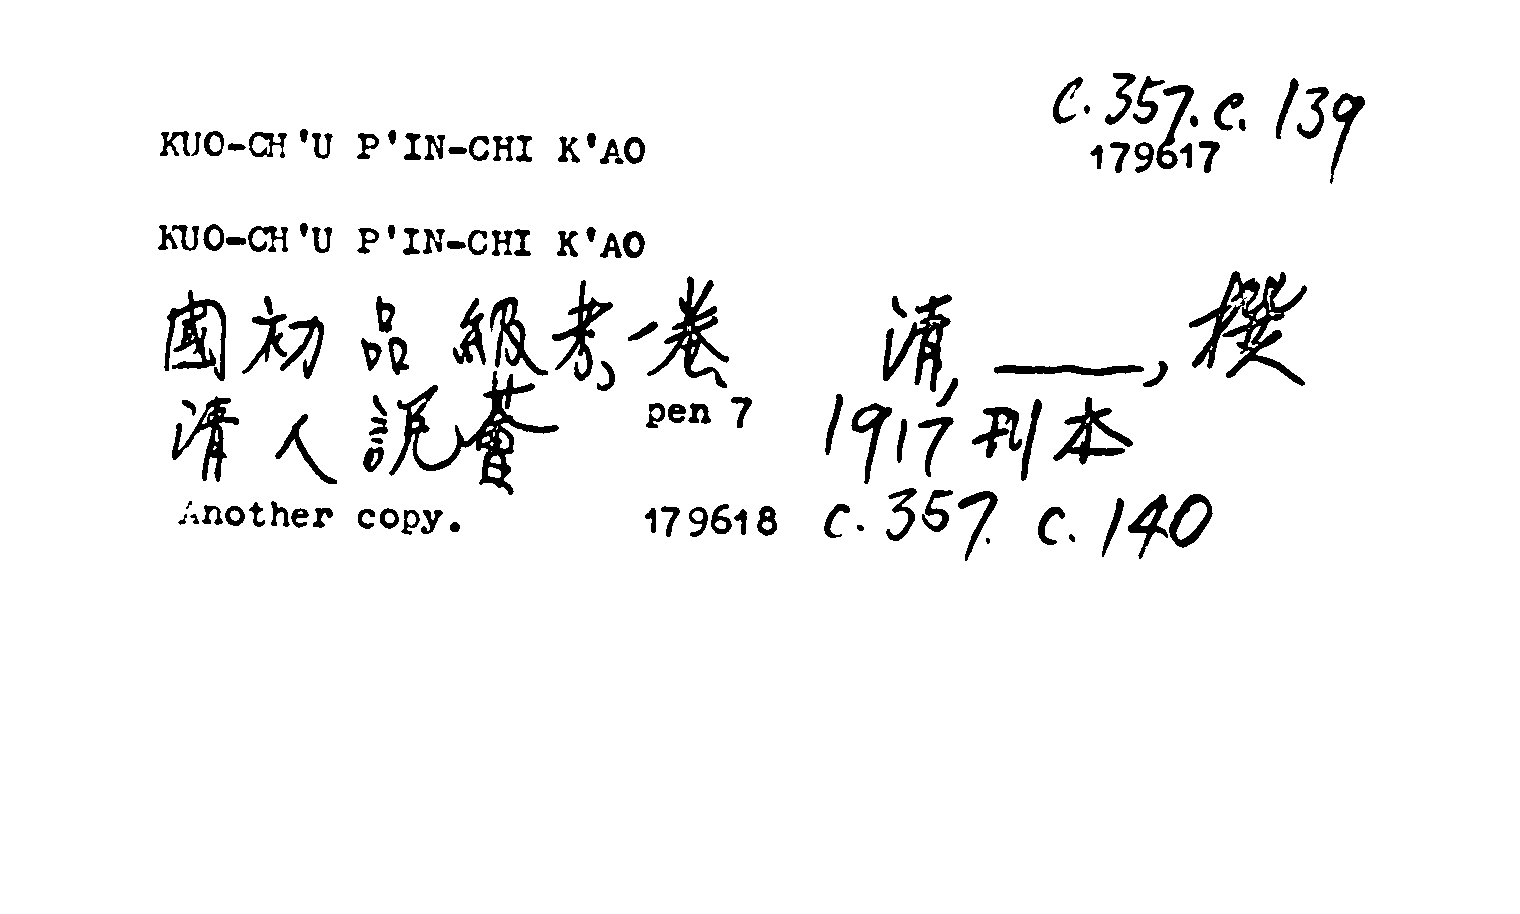 C. 357. C. 139
KUO-CH'U P'IN-CHI K'AO
179617
KUO-CH'U P'IN-CHI K'AO
國初品級考一卷 清, ___, 撰
清人說薈 pen 7 1917刊本
Another copy. 179618 C. 357. C. 140